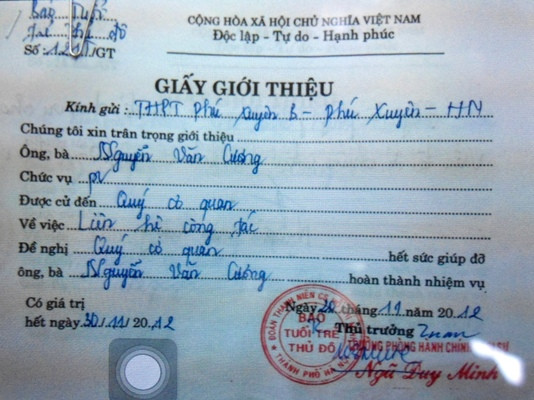 Báo Tuổi
trẻ thủ đô
CỘNG HÒA XÃ HỘI CHỦ NGHĨA VIỆT NAM
Độc lập - Tự do - Hạnh phúc
Số: /GT
GIẤY GIỚI THIỆU
Kính gửi: THPT Phú Xuyên B - Phú Xuyên - HN
Chúng tôi xin trân trọng giới thiệu
Ông, bà Nguyễn Văn Cương
Chức vụ pv
Được cử đến Quý cơ quan
Về việc Liên hệ công tác
Đề nghị Quý cơ quan hết sức giúp đỡ
ông, bà Nguyễn Văn Cương hoàn thành nhiệm vụ
Có giá trị
hết ngày 30/11/2012
Ngày 20 tháng 11 năm 2012
Thủ trưởng
ĐOÀN THANH NIÊN
BÁO
TUỔI TRẺ
THỦ ĐÔ
THÀNH PHỐ HÀ
TRƯỞNG PHÒNG HÀNH CHÍNH
Ngã Duy Minh